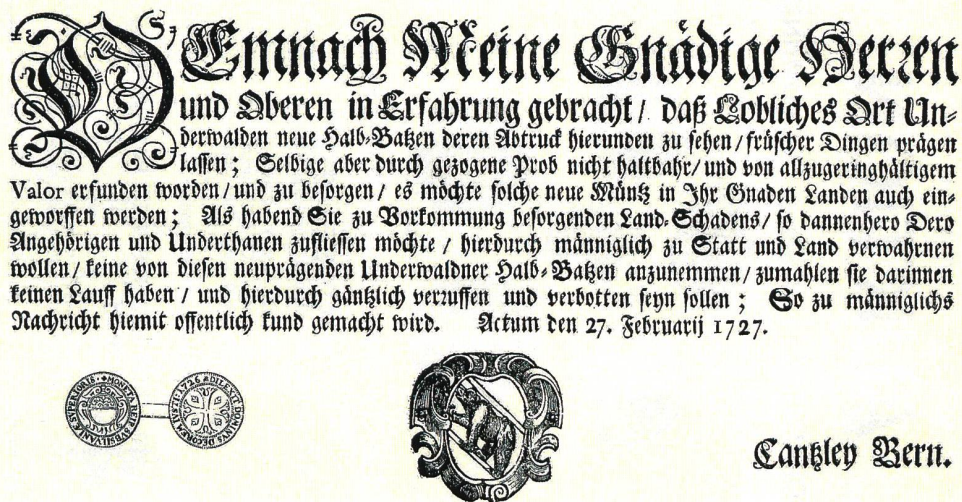 DEmnach Meine Gnädige Herren
und Oberen in Erfahrung gebracht / daß Lobliches Ort Un-
derwalden neue Halb-Batzen deren Abtruck hierunden zu sehen / früscher Dingen prägen
lassen ; Selbige aber durch gezogene Prob nicht haltbahr / und von allzugeringhältigem
Valor erfunden worden / und zu besorgen / es möchte solche neue Müntz in Ihr Gnaden Landen auch ein-
geworffen werden ; Als habend Sie zu Vorkommung besorgenden Land-Schadens / so dannenhero Dero
Angehörigen und Underthanen zufliessen möchte / hierdurch männiglich zu Statt und Land verwahrnen
wollen / keine von diesen neuprägenden Underwaldner Halb-Batzen anzunemmen / zumahlen sie darinnen
keinen Lauff haben / und hierdurch gäntzlich verruffen und verbotten seyn sollen ; So zu männiglichs
Nachricht hiemit offentlich kund gemacht wird. Actum den 27. Februarij 1727.
MONETA REIP SVBSILVANIÆ SVPERIORIS
DILEXIT DOMINVS DECOREM IVSTI 1726
Cantzley Bern.